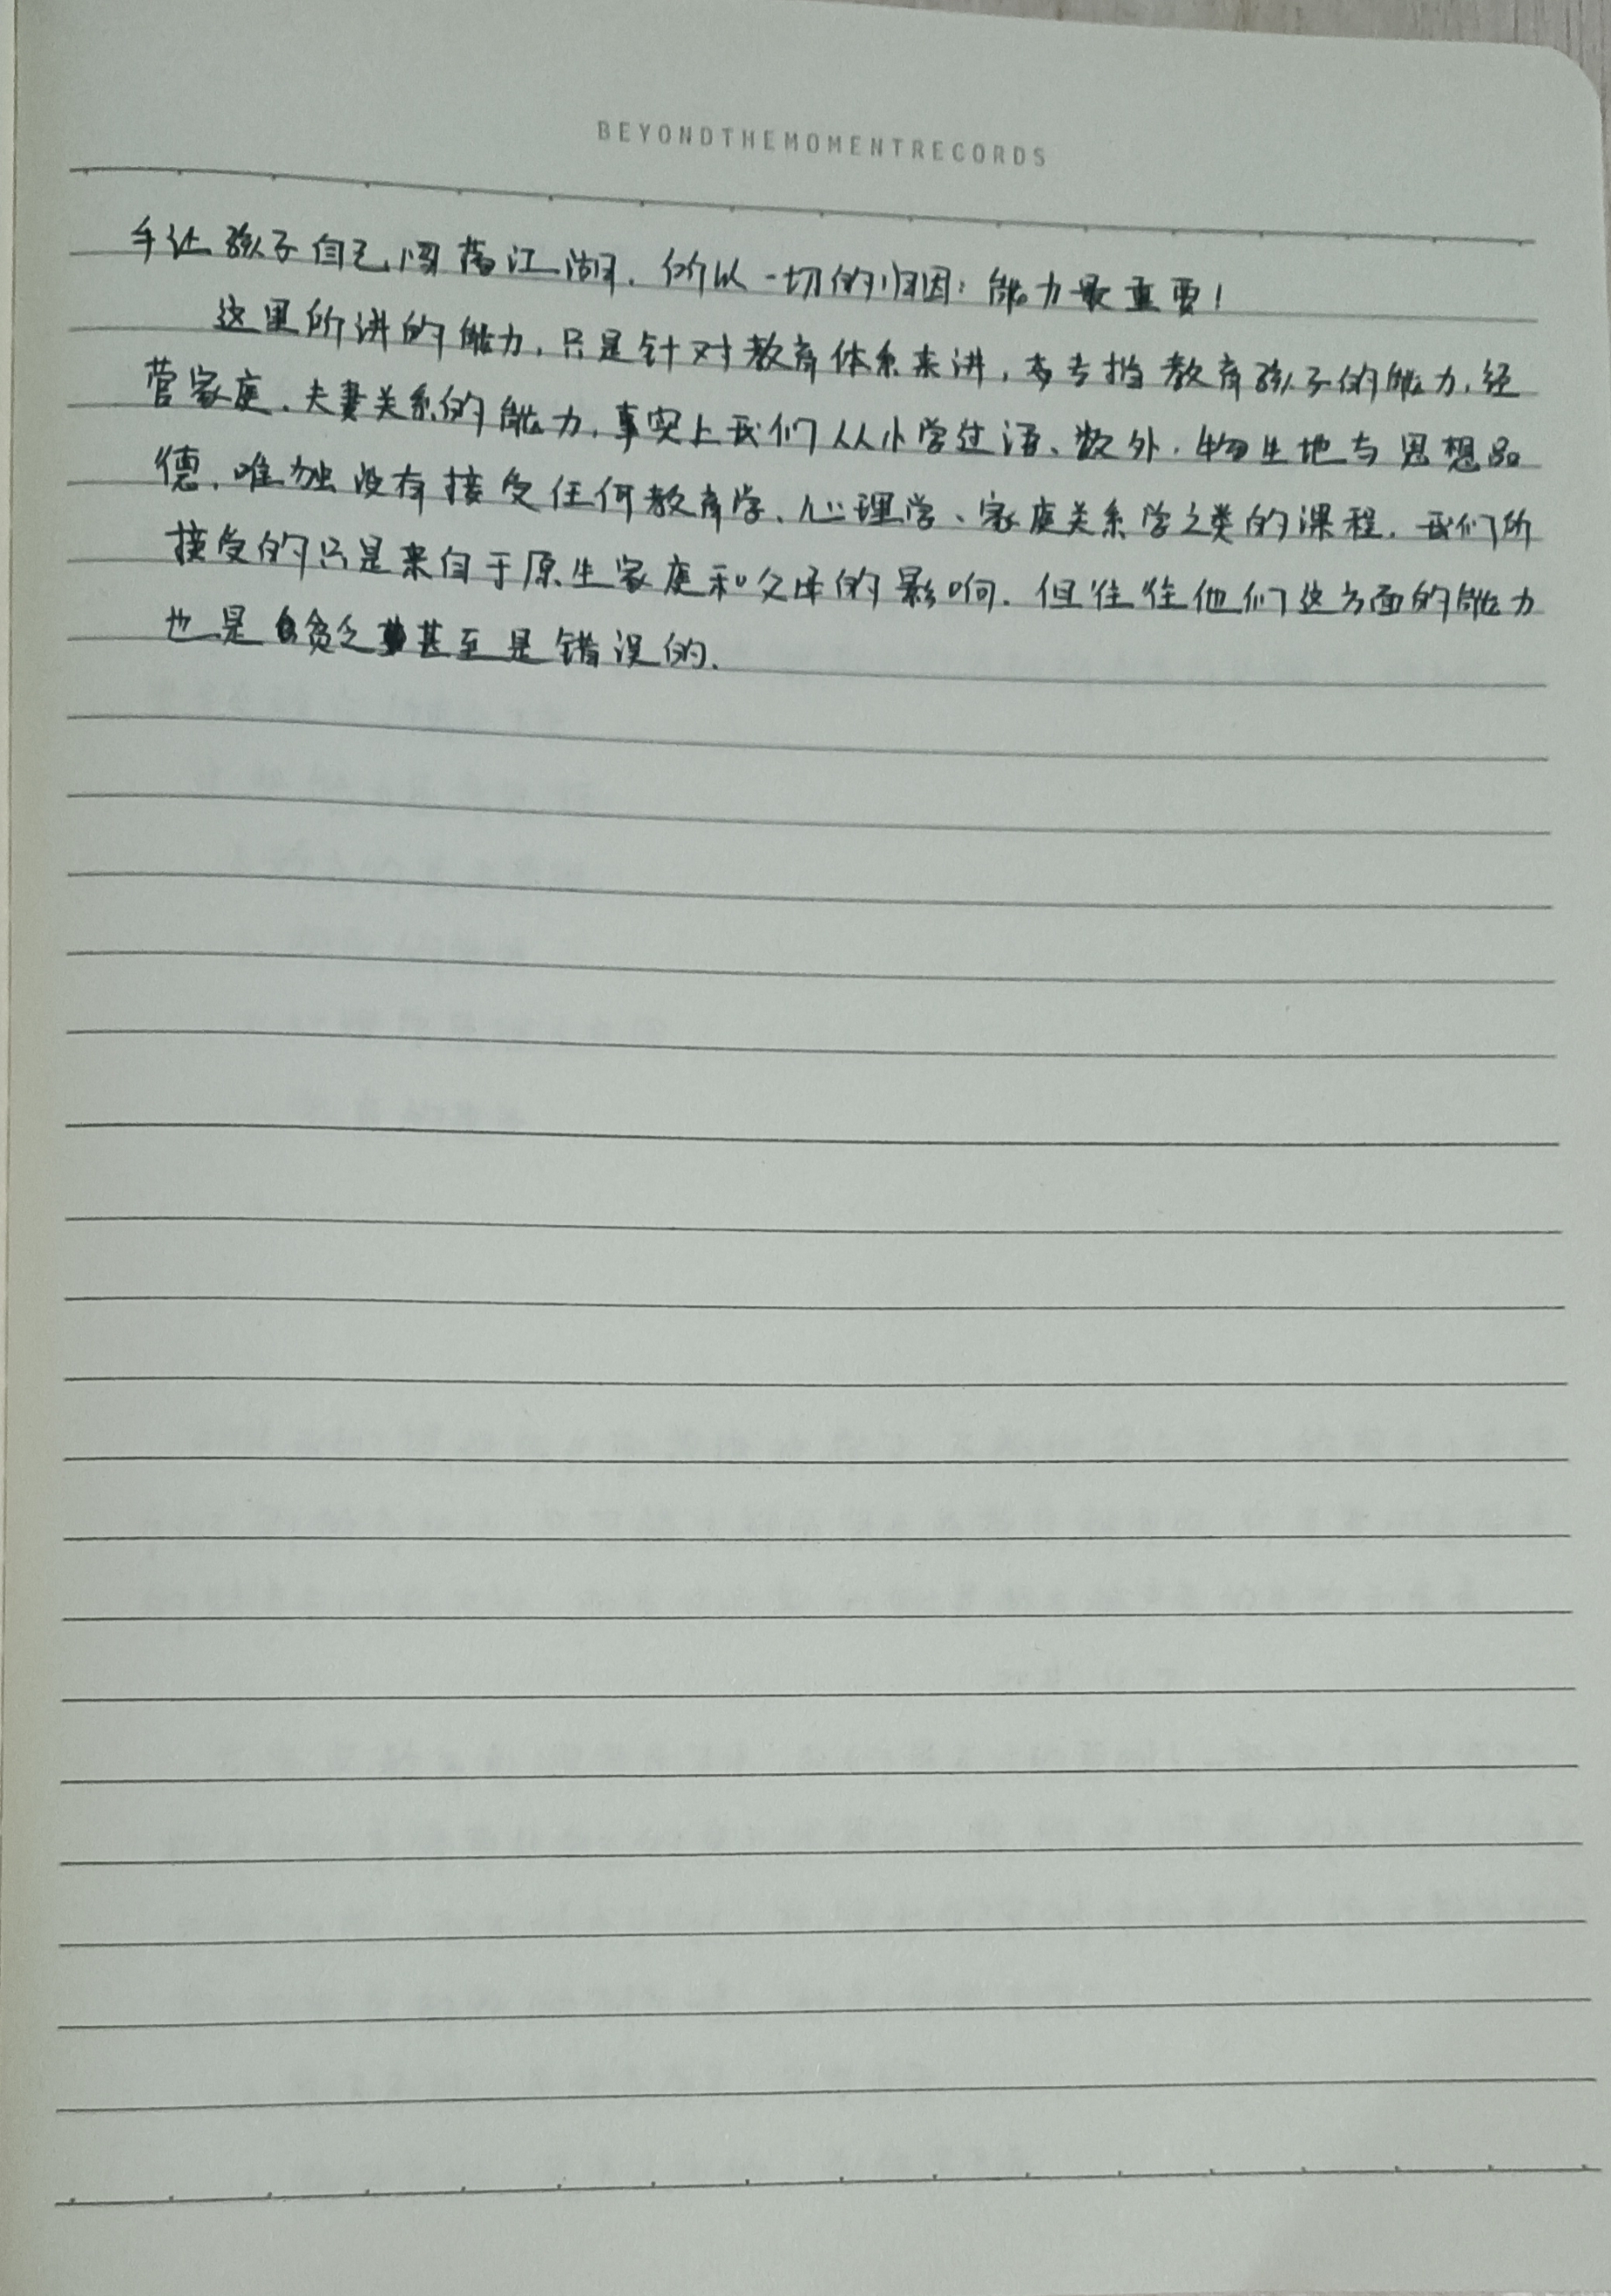 BEYONDTHEMOMENTRECORDS
手让孩子自己闯荡江湖. 所以一切的归因: 能力最重要!
这里所讲的能力, 只是针对教育体系来讲, 专指教育孩子的能力, 经
营家庭、夫妻关系的能力, 事实上我们从小学过语、数外、物生地与思想品
德, 唯独没有接受任何教育学、心理学、家庭关系学之类的课程. 我们所
接受的只是来自于原生家庭和父母的影响. 但往往他们这方面的能力
也是贫乏甚至是错误的.